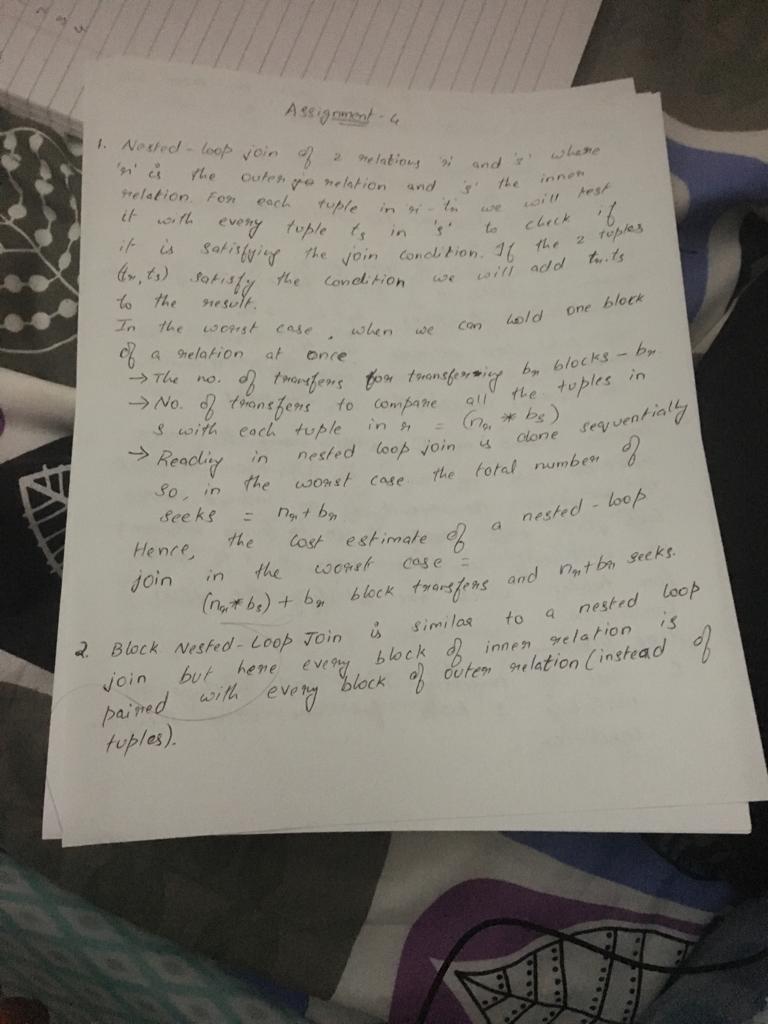 Assignment - 4
1. Nested-loop join of 2 relations 'r' and 's' where
'r' is the outer relation and 's' the inner
relation. For each tuple in r - tr we will test
it with every tuple ts in 's' to check if
it is satisfying the join condition. If the 2 tuples
(tr, ts) satisfy the condition we will add tr.ts
to the result.
In the worst case, when we can hold one block
of a relation at once
→ The no. of transfers for transferring br blocks - br
→ No. of transfers to compare all the tuples in
s with each tuple in r = (nr * bs)
→ Reading in nested loop join is done sequentially
so, in the worst case the total number of
seeks = nr + br
Hence, the cost estimate of a nested-loop
join in the worst case =
(nr * bs) + br block transfers and nr+br seeks.
2. Block Nested-Loop Join is similar to a nested loop
join but here every block of inner relation is
paired with every block of outer relation (instead of
tuples).